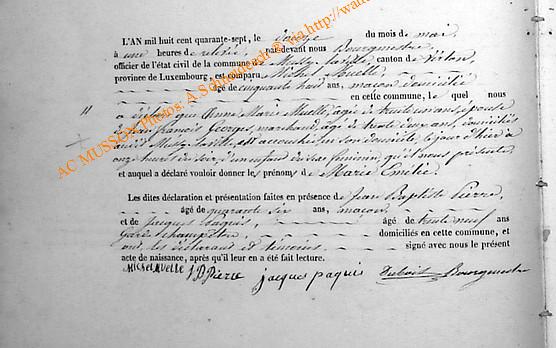 L'AN mil huit cent quarante-sept, le douze du mois de mai,
à une heures de relevée, par-devant nous Bourgmestre,
officier de l'état civil de la commune de Mussy-la-ville canton de Virton,
province de Luxembourg, est comparu Michel Muelle
âgé de cinquante huit ans, maçon domicilié
en cette commune, le quel nous
a déclaré que Anne Marie Muelle, agée de trente un ans, épouse
Jean François Georges, marchand, agé de trente deux ans, domiciliés
audit Mussy-la-ville, est accouchée en son domicile, le jour d'hier à
onze heures du soir, d'un enfant du sexe féminin, qu'il nous présente
et auquel a déclaré vouloir donner les prénoms de Marie Emélie
Les dites déclaration et présentation faites en présence de Jean Baptiste Pierre,
âgé de quarante six ans, maçon,
et de Jacques Paquis, âgé de trente neuf ans
Garde champêtre domiciliés en cette commune, et
ont, les déclarant et témoins signé avec nous le présent
acte de naissance, après qu'il leur en a été fait lecture.
Michel Muelle J B Pierre jacques paquis Bourgmestre
AC MUSSON Photos: A.Schmidedach ® via http://www